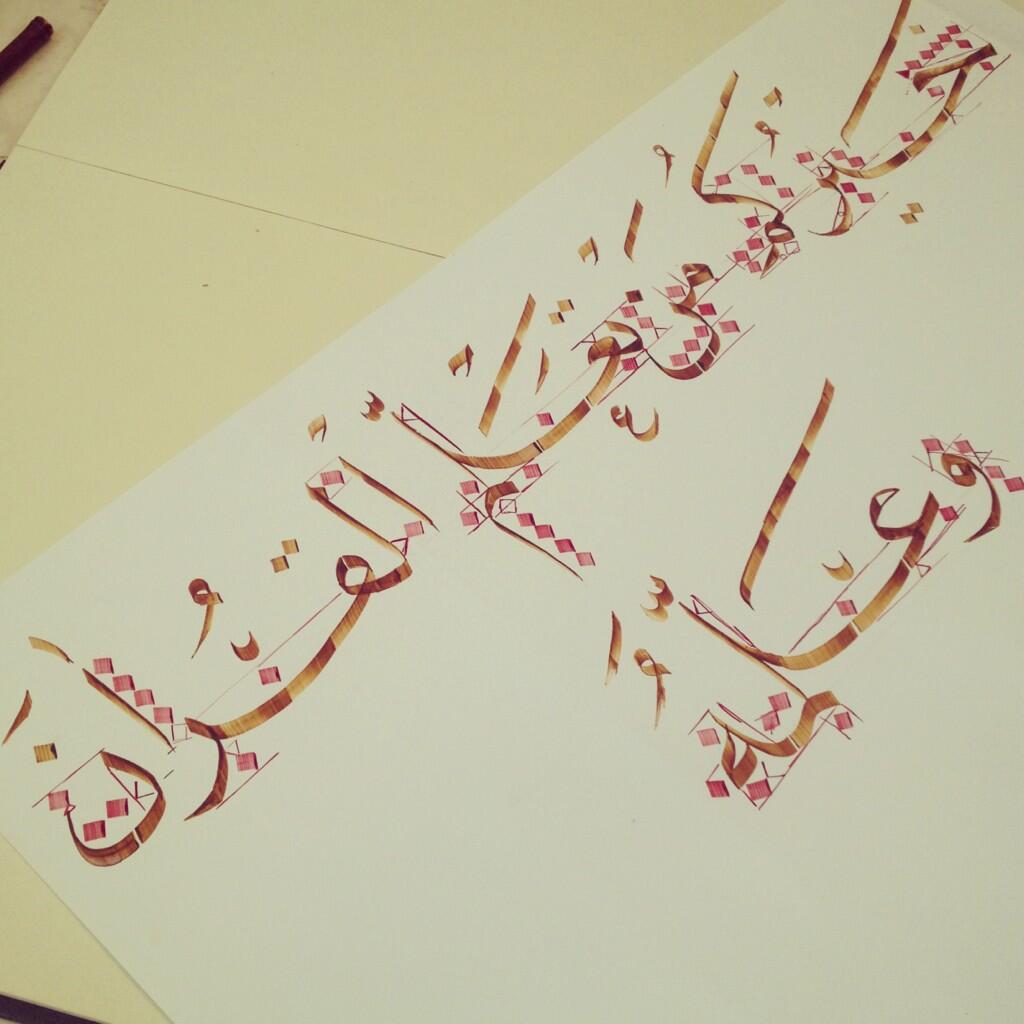 خَيْرُكُمْ مَنْ تَعَلَّمَ الْقُرْاٰنَ
وَعَلَّمَهُ